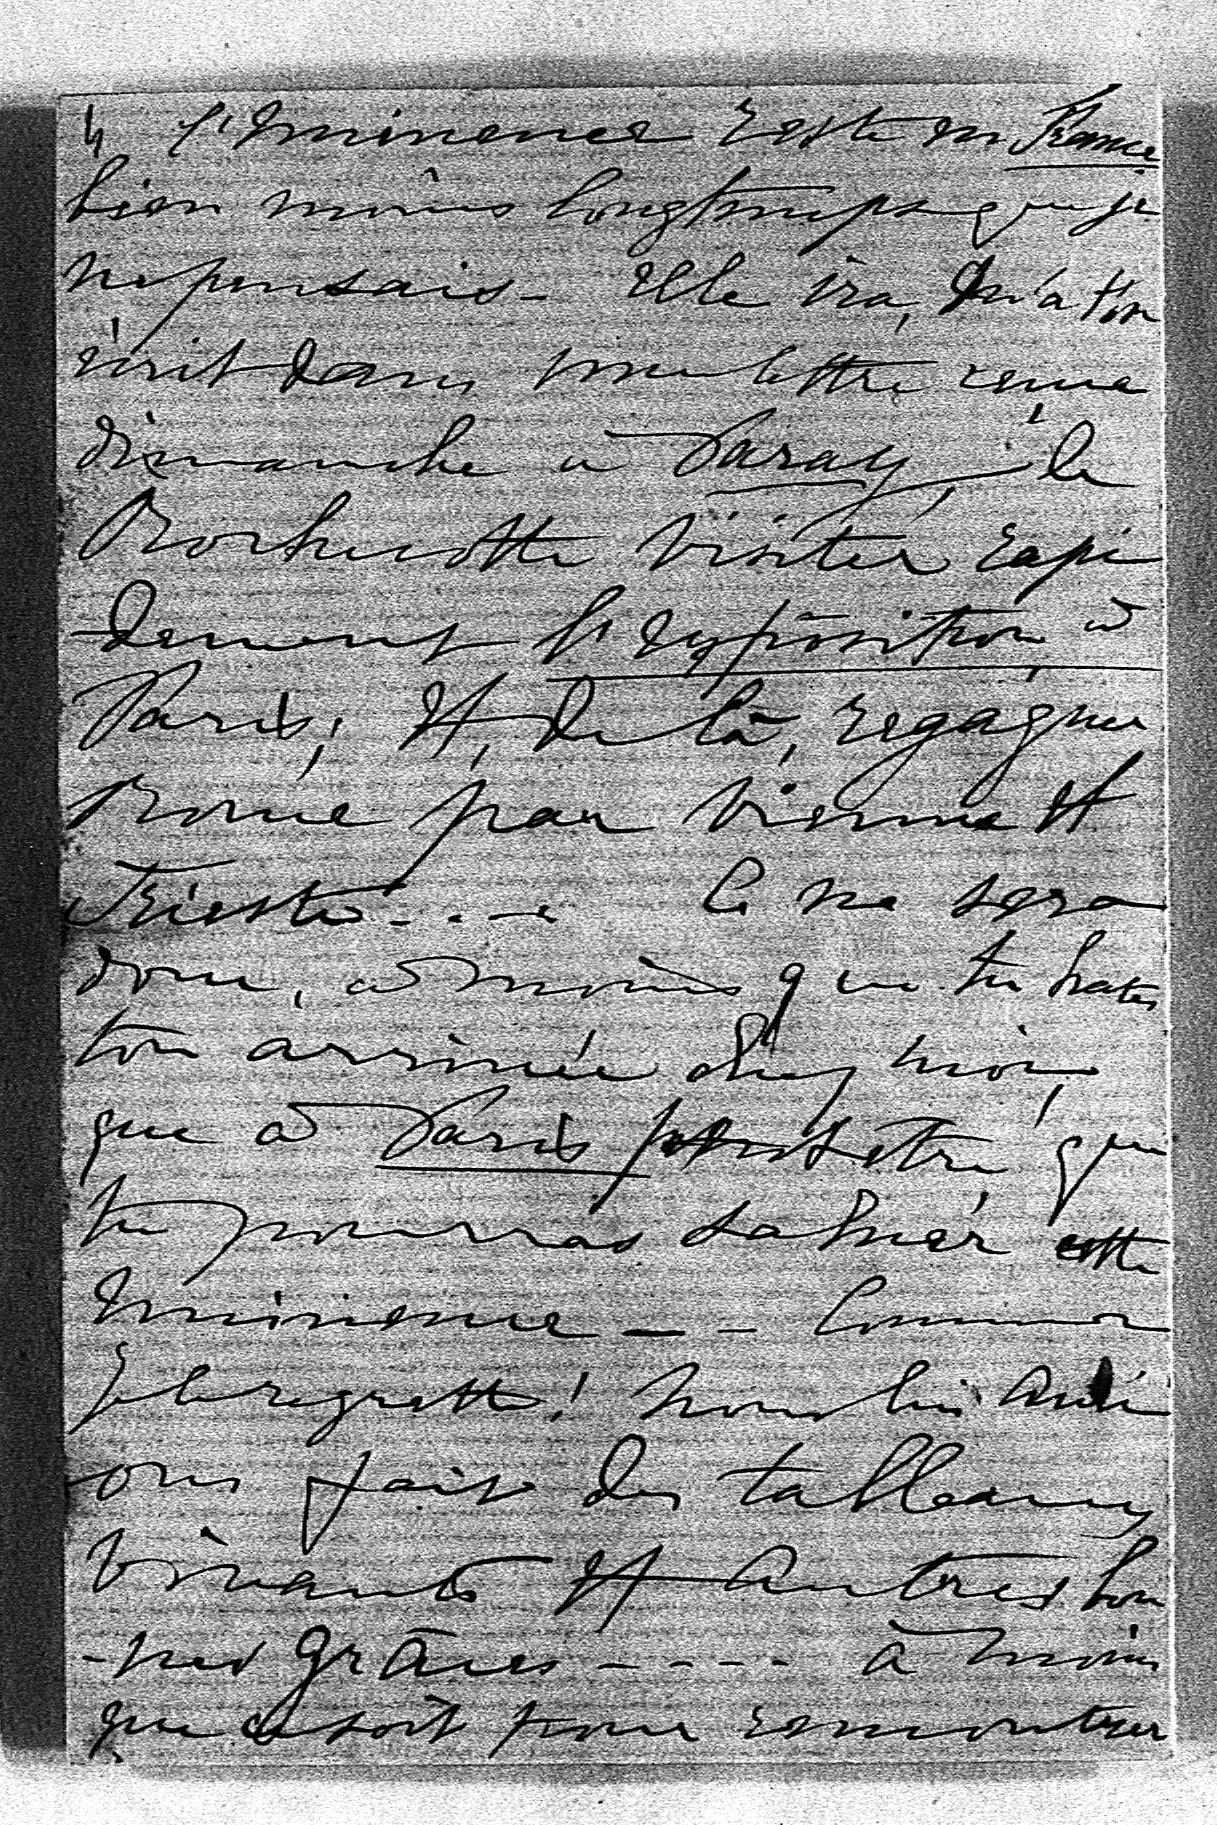 4 l'Eminence reste en France
bien moins longtemps que je
ne pensais - Elle ira, m'a t'on
écrit dans une lettre reçue
dimanche à Paray, à
Rochecotte visiter rapi
-dement l'Exposition à
Paris; et, de là, regagner
Rome par Vienne et
Trieste - - - - Ce ne sera
donc, à moins que tu hates
ton arrivée chez moi,
que à Paris peut-etre que
tu pourras saluer cette
Eminence - - - Comme
je le regrette! nous lui auri
ons fait des tableaux
vivants et autres bon
-nes grâces - - - - à moins
que ce soit pour remonter